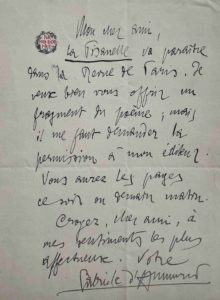 Mon cher ami,
la Pisanelle va paraître
dans la Revue de Paris. Je
veux bien vous offrir un
fragment du poème; mais
il me faut demander la
permission à mon éditeur.
Vous aurez les pages
ce soir ou demain matin.
Croyez, cher ami, à
mes sentiments les plus
affectueux. Votre
Gabriele d'Annunzio